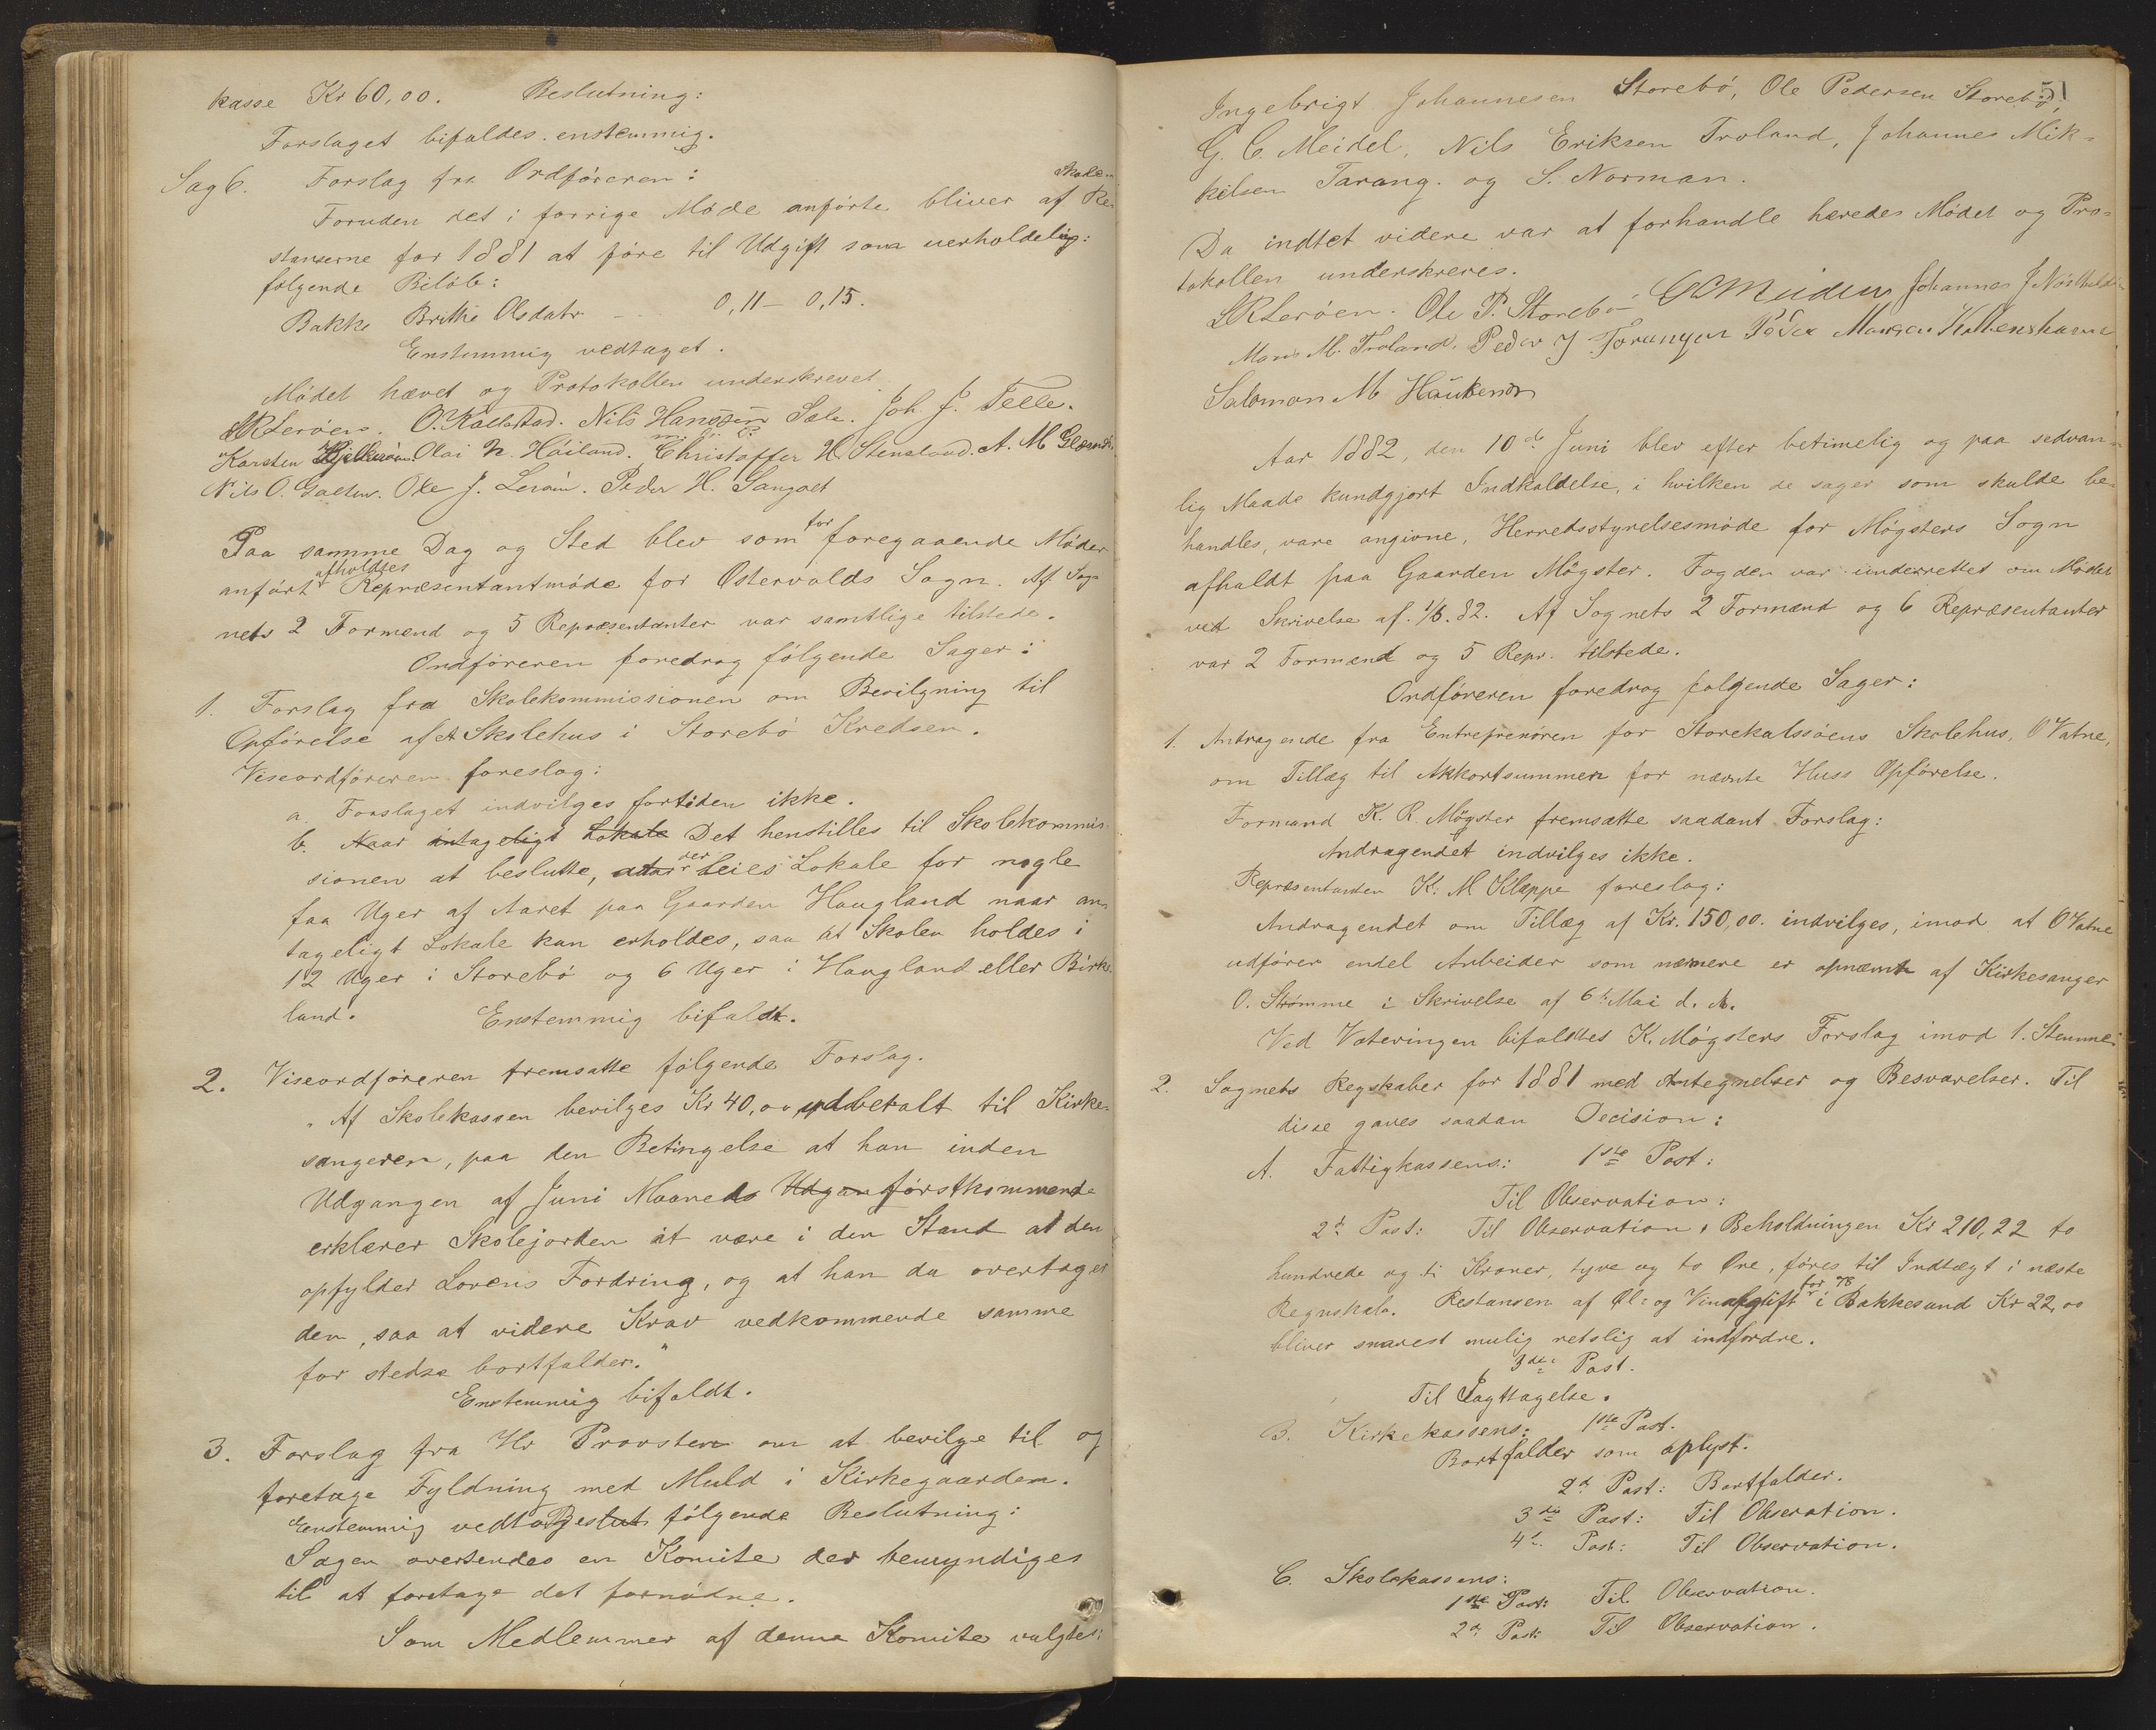 kasse Kr 60,00. Beslutning:
Forslaget bifaldes enstemmig.
Sag 6. Forslag fra Ordføreren:
Foruden det i forrige Møde anførte bliver af Skole-Re-
stanserne for 1881 at føre til Udgift som uerholdelig:
følgende Beløb:
Bakke Brithe Olsdatr - - 0,11 - 0,15.
Enstemmig vedtaget.
Mødet hævet og Protokollen underskrevet.
SRLerøen. O. Kaalstad. Nils Hanssen Sæle. Joh. J. Telle.
m. f. P.
Karsten Olai N. Høiland. Christoffer H. Stensland. A. M
Nils O. Gaelten. Ole J. Lerøen. Peder H. Sangolt
Paa samme Dag og Sted blev som for foregaaende Møder
anført afholdtes Repræsentantmøde for Østervolds Sogn. Af Sog-
nets 2 Formend og 5 Repræsentanter var samtlige tilstede.
Ordføreren foredrog følgende Sager:
1. Forslag fra Skolekommissionen om Bevilgning til
Opførelse af et Skolehus i Storebø Kredsen.
Viseordføreren foreslog:
a. Forslaget indvilges fortiden ikke.
b. Naar antageligt Lokale Det henstilles til Skolekommis-
sionen at beslutte, at der leies Lokale for nogle
faa Uger af Aaret paa Gaarden Haugland naar an-
tageligt Lokale kan erholdes, saa at Skolen holdes i
12 Uger i Storebø og 6 Uger i Haugland eller Birke-
land. Enstemmig bifaldt.
2. Viseordføreren fremsatte følgende Forslag.
"Af Skolekassen bevilges Kr 40,00 udbetalt til Kirke-
sangeren, paa den Betingelse at han inden
Udgangen af Juni Maaneds Udgan førstkommende
erklærer Skolejorden at være i den Stand at den
opfylder Lovens Fordring, og at han da overtager
den, saa at videre Krav vedkommende samme
for stedse bortfalder."
Enstemmig bifaldt.
3. Forslag fra Hr Provsten om at bevilge til og
foretage Fyldning med Muld i Kirkegaarden.
Eenstemmig vedtoges Beslut følgende Beslutning:
Sagen oversendes en Komite der bemyndiges
til at foretage det fornødne.
Som Medlemmer af denne Komite valgtes:
51
Ingebrigt Johannesen Storebø, Ole Pedersen Storebø,
G. C. Meidel, Nils Eriksen Troland, Johannes Mik-
kelsen Tarang. og S. Norman.
Da indtet videre var at forhandle hævedes Mødet og Pro-
tokollen underskreves.
SRLerøen. Ole P. Storebø GCMeidell Johannes J
Mons M. Troland. Peder J Torangen Peder Monsen
Salomon M Haukenes
Aar 1882, den 10de Juni blev efter betimelig og paa sedvan-
lig Maade kundgjort Indkaldelse, i hvilken de sager som skulde be-
handles, vare angivne, Herredsstyrelsesmøde for Møgsters Sogn
afholdt paa Gaarden Møgster. Fogden var underrettet om Mødet
ved Skrivelse af 1/6.82. Af Sognets 2 Formænd og 6 Repræsentanter
var 2 Formænd og 5 Repr. tilstede.
Ordføreren foredrog følgende Sager:
1. Andragende fra Entreprenøren for Storekalsøens Skolehus, O Vatne,
om Tillæg til Akkortsummen for nævnte Huss Opførelse.
Formand K. R. Møgster fremsatte saadant Forslag:
Andragendet indvilges ikke.
Repræsentanten K. M Kleppe foreslog:
Andragendet om Tillæg af Kr. 150,00. indvilges, imod at O Vatne
udfører endel Arbeider som nærmere er opnævnt af Kirkesanger
O. Strømme i Skrivelse af 6te Mai d. A.
Ved Voteringen bifaldtes K. Møgsters Forslag imod 1. Stemme.
2. Sognets Regskaber for 1881 med Antegnelser og Besvarelser. Til
disse gaves saadan Decision:
A. Fattigkassens: 1ste Post:
Til Observation:
2d Post: Til Observation, Beholdningen Kr 210,22 to
hundrede og ti Kroner, tyve og to Øre, føres til Indtægt i næste
Regnskab. Restansen af Øl- og Vinafgift for 78 i Bakkesund Kr 22,00
bliver snarest mulig retslig at indfordre.
3die Post.
Til Iagttagelse.
B. Kirkekassens: 1ste Post.
Bortfalder som oplyst.
2d Post: Bortfalder.
3die Post: Til Obseration.
4de Post: Til Observation.
C. Skolekassens:
1ste Post: Til Observation.
2d Post: Til Observation.